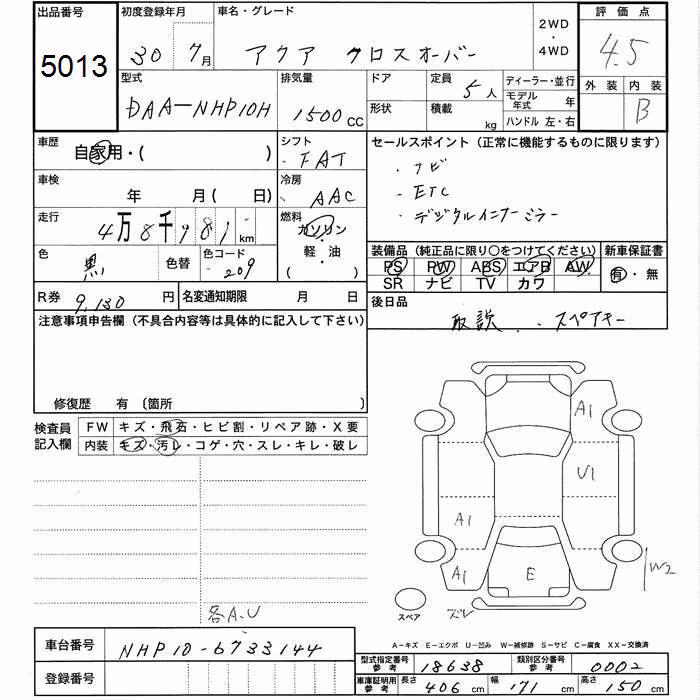 出品番号 初度登録年月 車名・グレード 2WD・4WD 評価点
5013 30 7月 アクア クロスオーバー 4.5
型式 排気量 ドア 定員 5人 ディーラー・並行 外装 内装
DAA-NHP10H 1500cc 形状 積載 kg モデル年式 年 B
ハンドル 左・右
車歴 自家用・( ) シフト FAT セールスポイント (正常に機能するものに限ります)
車検 年 月( 日) 冷房 AAC ・ナビ
・ETC
走行 4万8千981km 燃料 ガソリン ・デジタルインナーミラー
軽・油
( )
色 黒 色替 色コード 209 装備品 (純正品に限り○をつけてください) 新車保証書
PS PW ABS エアB AW 有・無
SR ナビ TV カワ
R券 9,130円 名変通知期限 月 日 後日品
取説 . スペアキー
注意事項申告欄 (不具合内容等は具体的に記入して下さい)
修復歴 有 (箇所 )
検査員記入欄 FW キズ・飛石・ヒビ割・リペア跡・X要
内装 キズ・汚レ・コゲ・穴・スレ・キレ・破レ
A1
U1
A1
A1 E W2
スペア ズレ
各A.U
A-キズ E-エクボ U-凹み W-補修跡 S-サビ C-腐食 XX-交換済
車台番号 NHP10-6733144
型式指定番号 参考 18638 類別区分番号 参考 0002
登録番号
車庫証明用 参考 長さ 406cm 幅 171cm 高さ 150cm